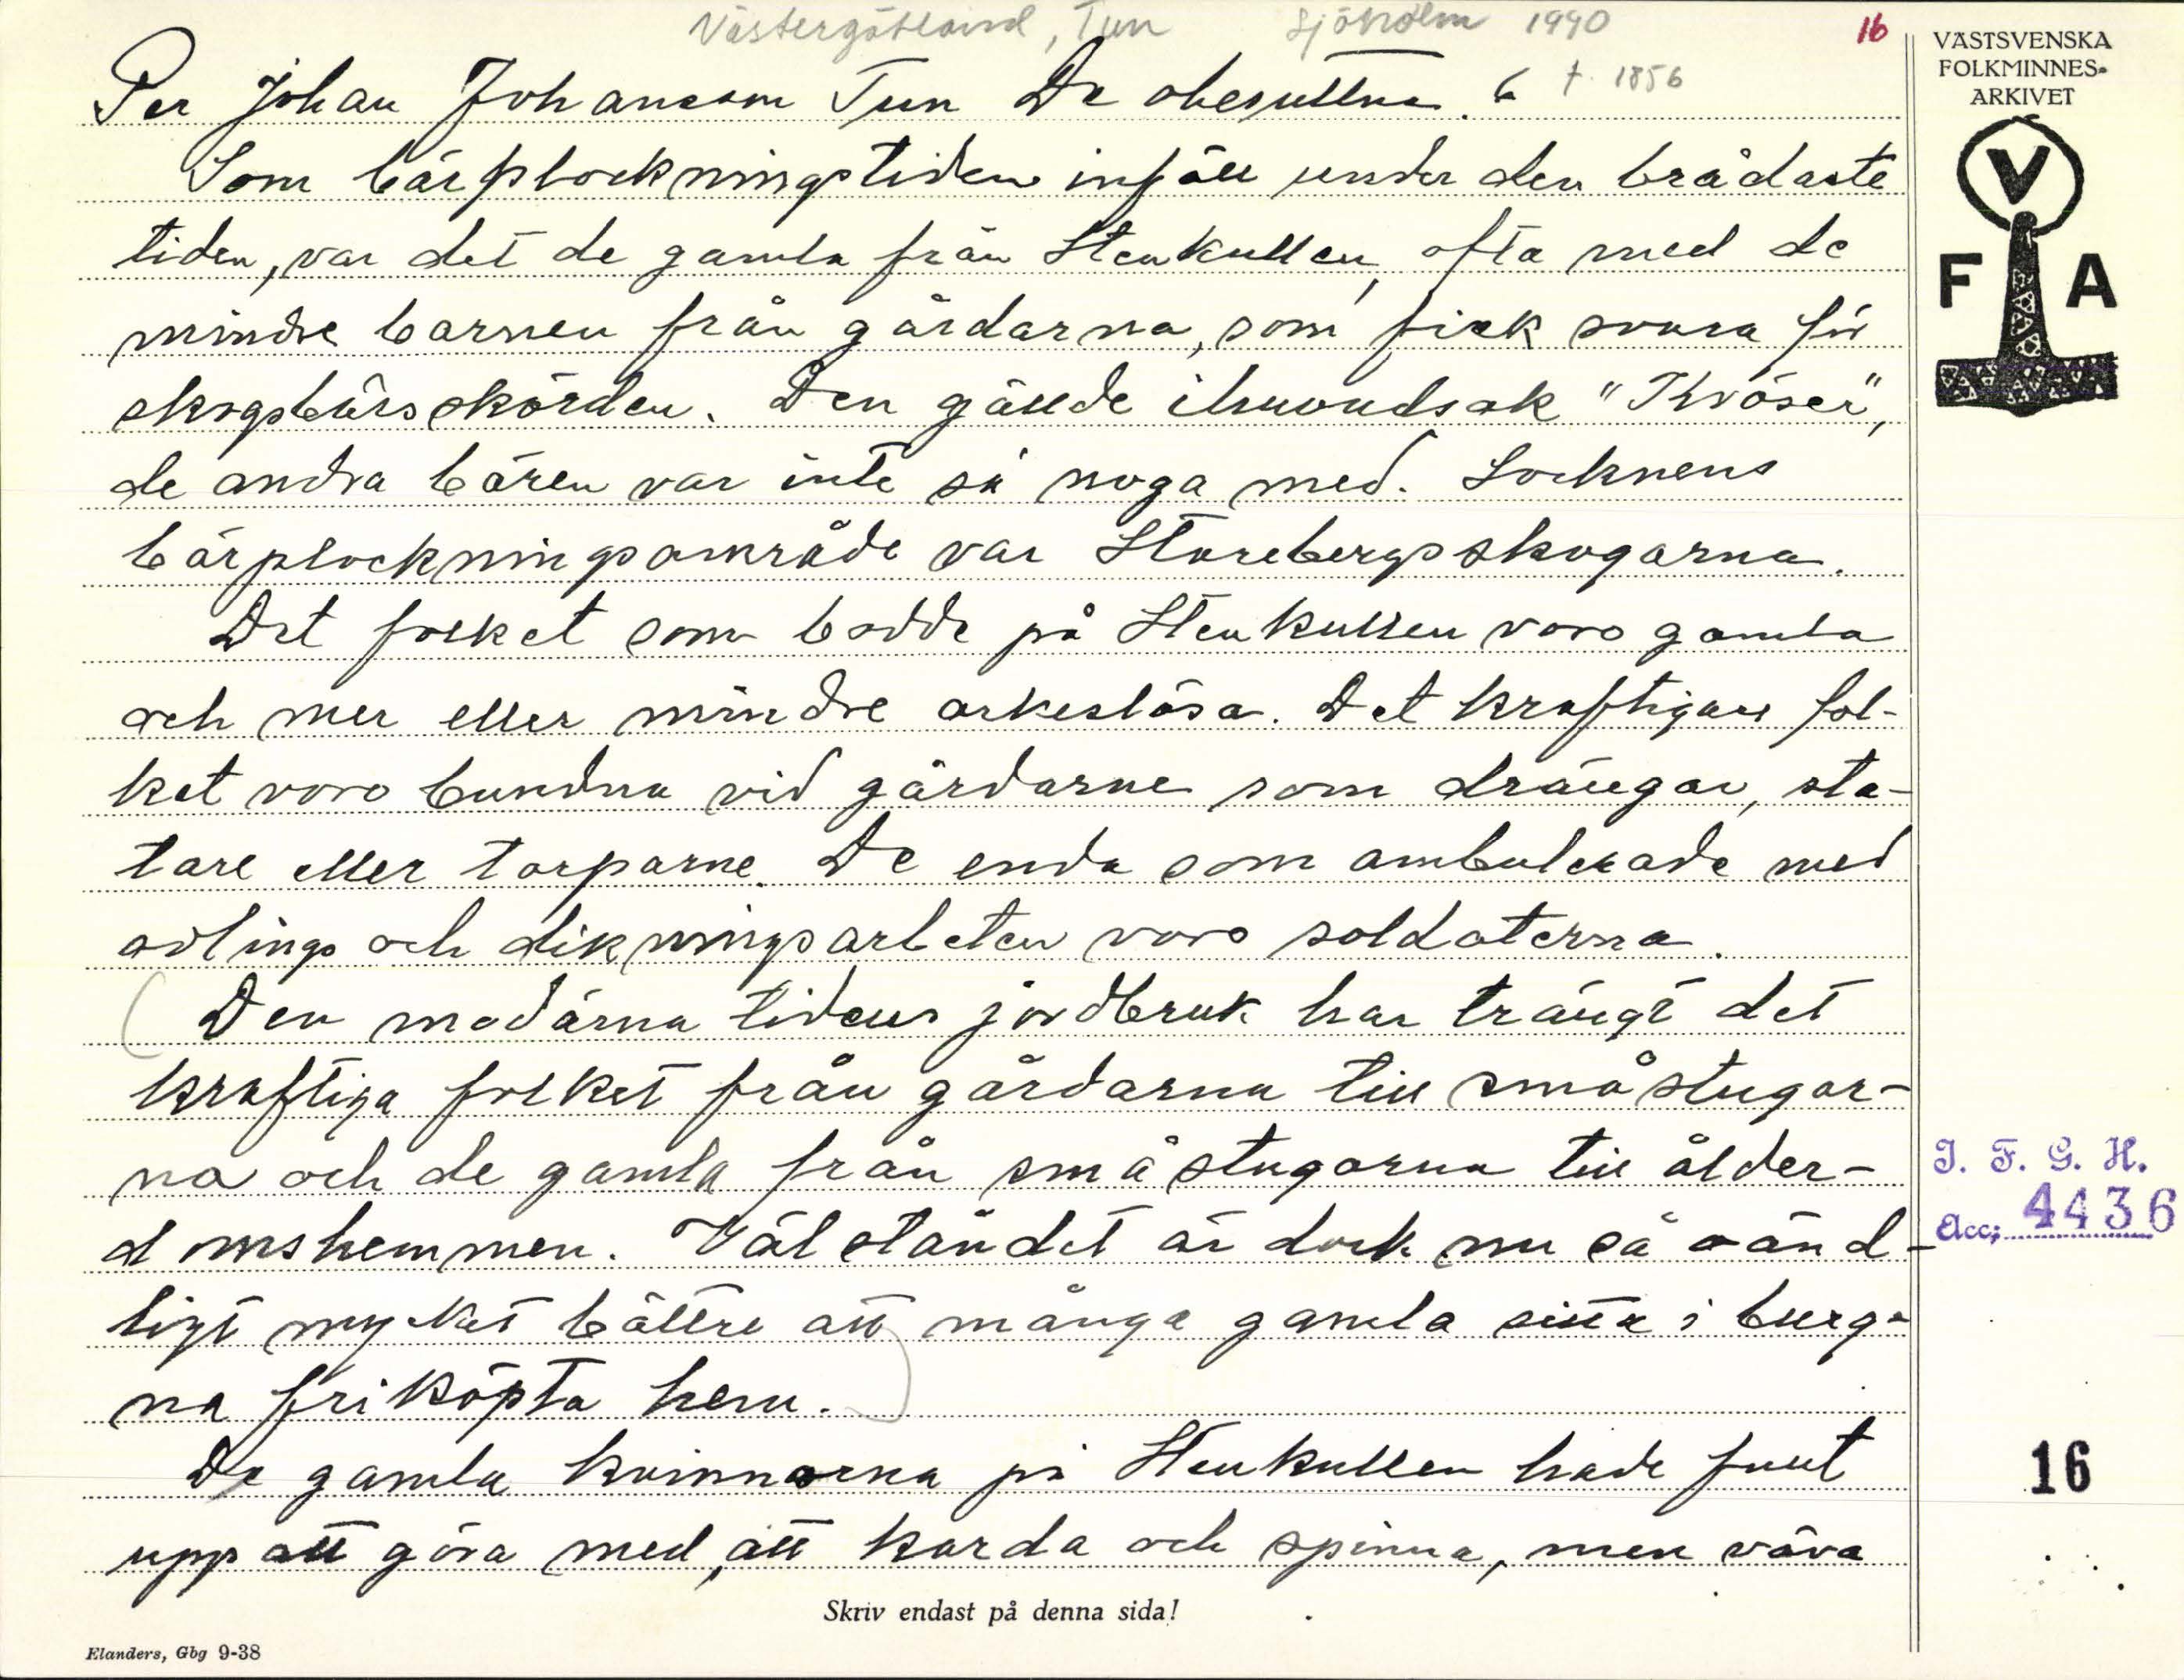 Västergötland, Tun Sjöholm 1940
16
Per Johan Johansson Tun De obesuttna. 6 f. 1856
Som bärplockningstiden inföll under den brådaste
tiden, var det de gamla från Stenkullen, ofta med de
mindre barnen från gårdarna, som fick svara för
skogsbärsskörden. Den gällde i huvudsak "Kröser",
de andra bären var inte så noga med. Socknens
bärplockningsområde var Storebergsskogarna.
Det folket som bodde på Stenkullen voro gamla
och mer eller mindre orkeslösa. Det kraftigare fol-
ket voro bundna vid gårdarne som drängar, sta-
tare eller torparne. De enda som ambulerade med
odlings och dikningsarbeten voro soldaterna.
(Den modärna tidens jordbruk har trängt det
kraftiga folket från gårdarna till småstugor-
na och de gamla från småstugorna till ålder-
domshemmen. Välståndet är dock nu så oänd-
ligt mycket bättre att) många gamla sitta i burg-
na friköpta hem.
De gamla kvinnorna på Stenkullen hade fullt
upp att göra med, att karda och spinna, men väva
Skriv endast på denna sida!
Elanders, Gbg 9-38
VÄSTSVENSKA
FOLKMINNES-
ARKIVET
V
F A
I. F. G. H.
Acc; 4436
16